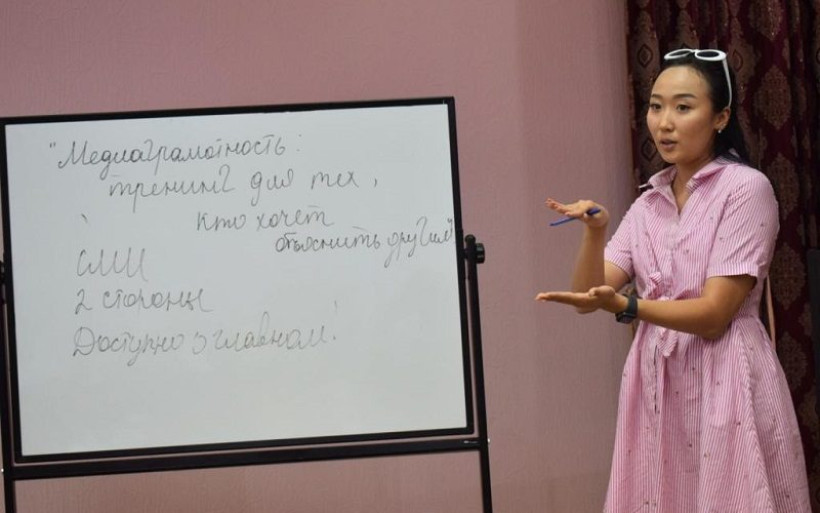 "Медиаграмотность:
тренинг для тех,
кто хочет
объяснить другим"
СМИ
2 стороны
Доступно о главном!